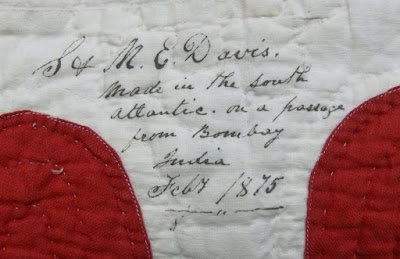 S & M. E. Davis.
Made in the south
Atlantic. on a passage
from Bombay
India
Feby 1875